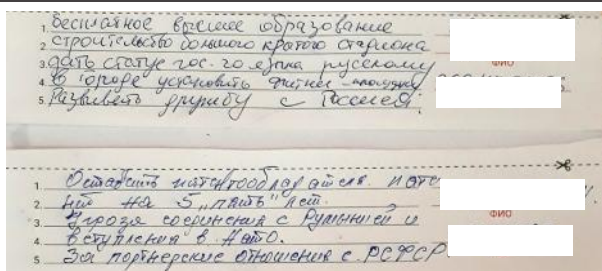 1. бесплатное высшее образование
2. строительство большого крытого стадиона
3. дать статус гос-го языка русскому
ФИО
4. в городе установить фитнес -площадку
5. Развивать дружбу с Россией.
1. Оставить
2. на 5 „пять" лет.
ФИО
3. Угроза соединения с Румынией и
4. вступления в НАТО.
5. За партнерские отношения с РСФСР